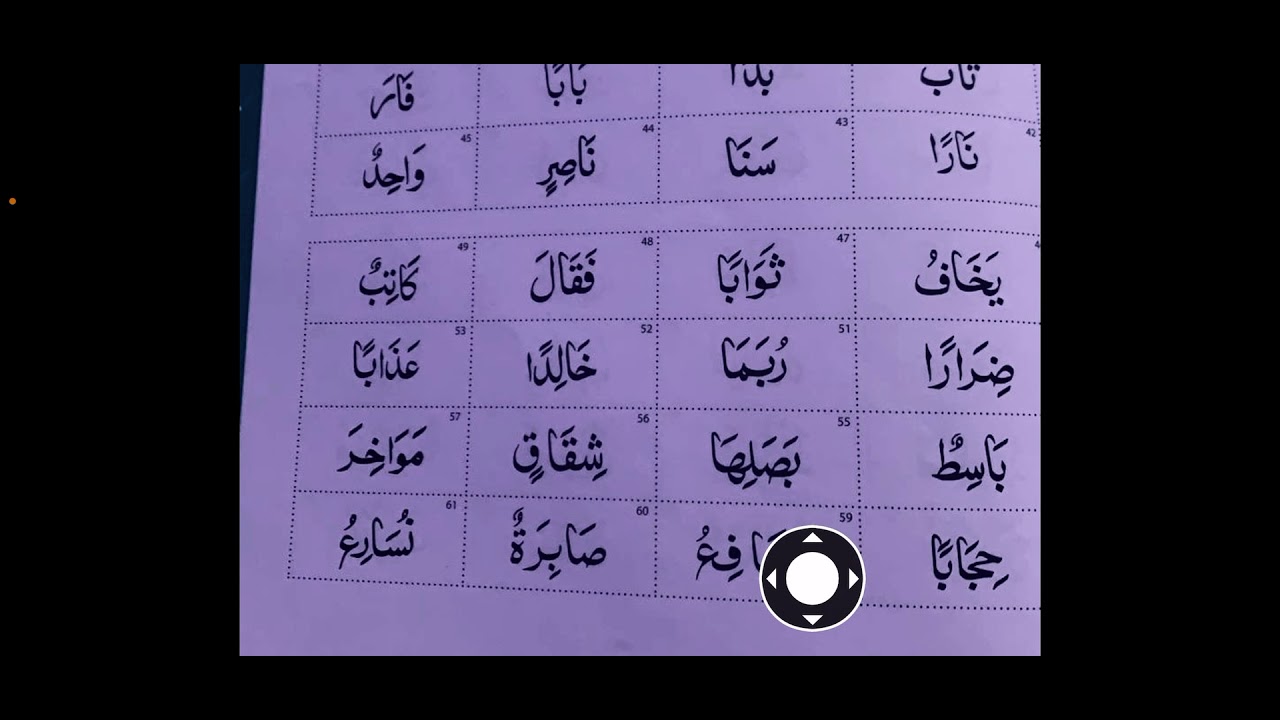 تَابَ بَدَا بَابًا فَارَ
42 نَارًا 43 سَنَا 44 نَاصِرٍ 45 وَاحِدٌ
يَخَافُ 47 ثَوَابًا 48 فَقَالَ 49 كَاتِبٌ
ضِرَارًا 51 رُبَمَا 52 خَالِدًا 53 عَذَابًا
بَاسِطٌ 55 بَصَلِهَا 56 شِقَاقٍ 57 مَوَاخِرَ
حِجَابًا 59 60 صَابِرَةٌ 61 نُسَارِعُ